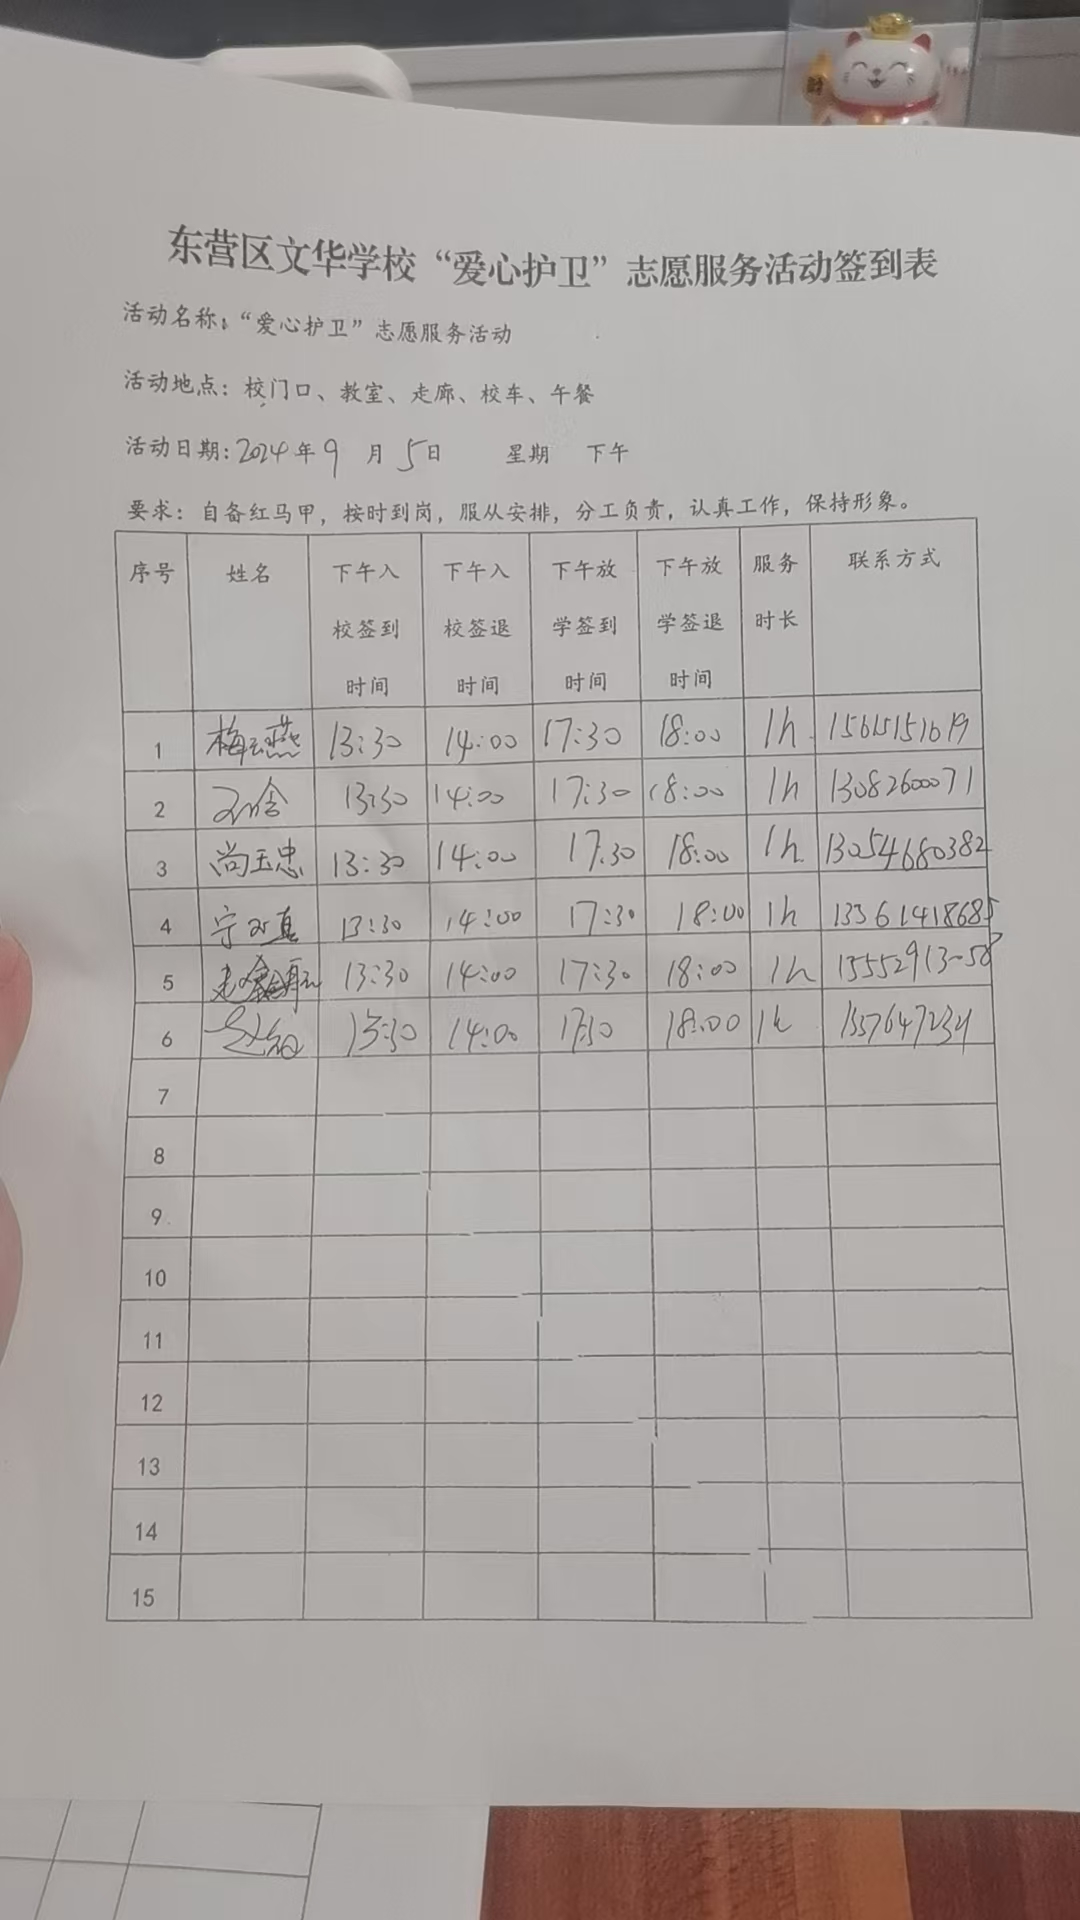 东营区文华学校“爱心护卫”志愿服务活动签到表
活动名称：“爱心护卫”志愿服务活动
活动地点：校门口、教室、走廊、校车、午餐
活动日期：2024年9月5日 星期 下午
要求：自备红马甲，按时到岗，服从安排，分工负责，认真工作，保持形象。
序号 姓名 下午入校签到时间 下午入校签退时间 下午放学签到时间 下午放学签退时间 服务时长 联系方式
1 梅燕 13:30 14:00 17:30 18:00 1h 15615151619
2 13:30 14:00 17:30 18:00 1h 13082600071
3 尚玉忠 13:30 14:00 17:30 18:00 1h 13054680382
4 宁 13:30 14:00 17:30 18:00 1h 13361418685
5 13:30 14:00 17:30 18:00 1h
6 赵 13:30 14:00 17:30 18:00 1h
7
8
9
10
11
12
13
14
15